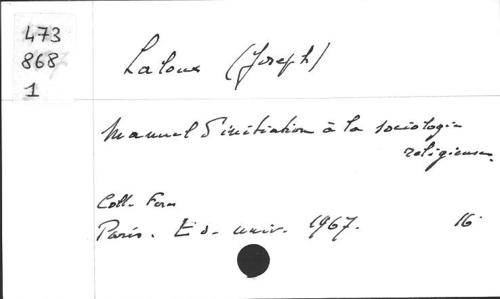 473
868
1
Laloux (Joseph)
Manuel d'initiation à la sociologie
religieuse.
Coll. Feres
Paris. Ed. univ. 1967. 16